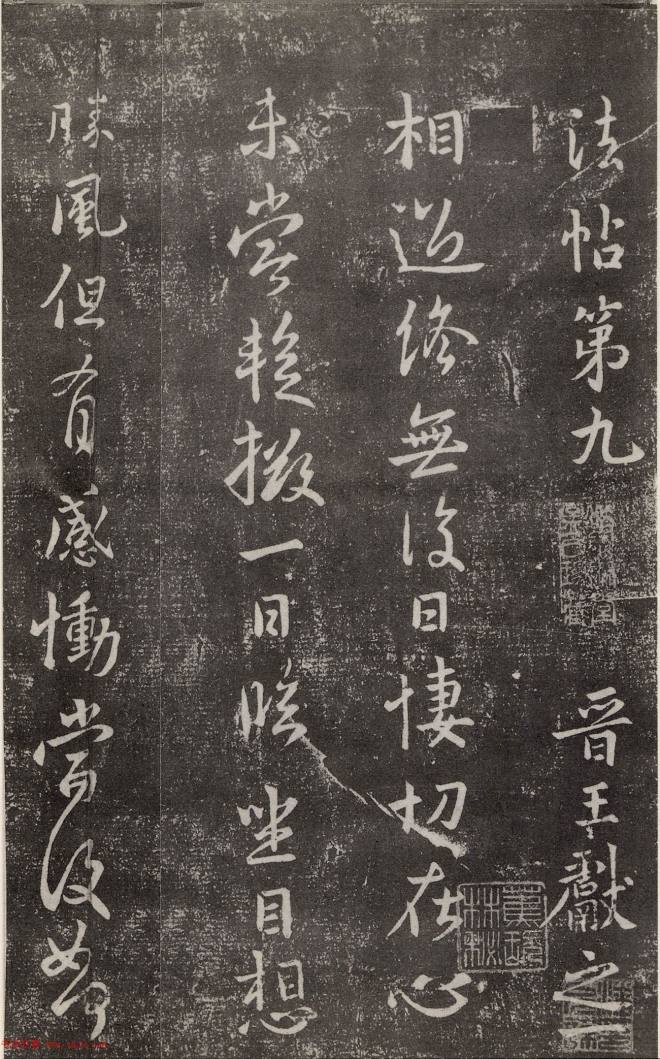 法帖第九 晋王獻之一
相過終無復日悽切在心
未嘗暫掇一日臨坐目想
勝風但有感慟當復如何